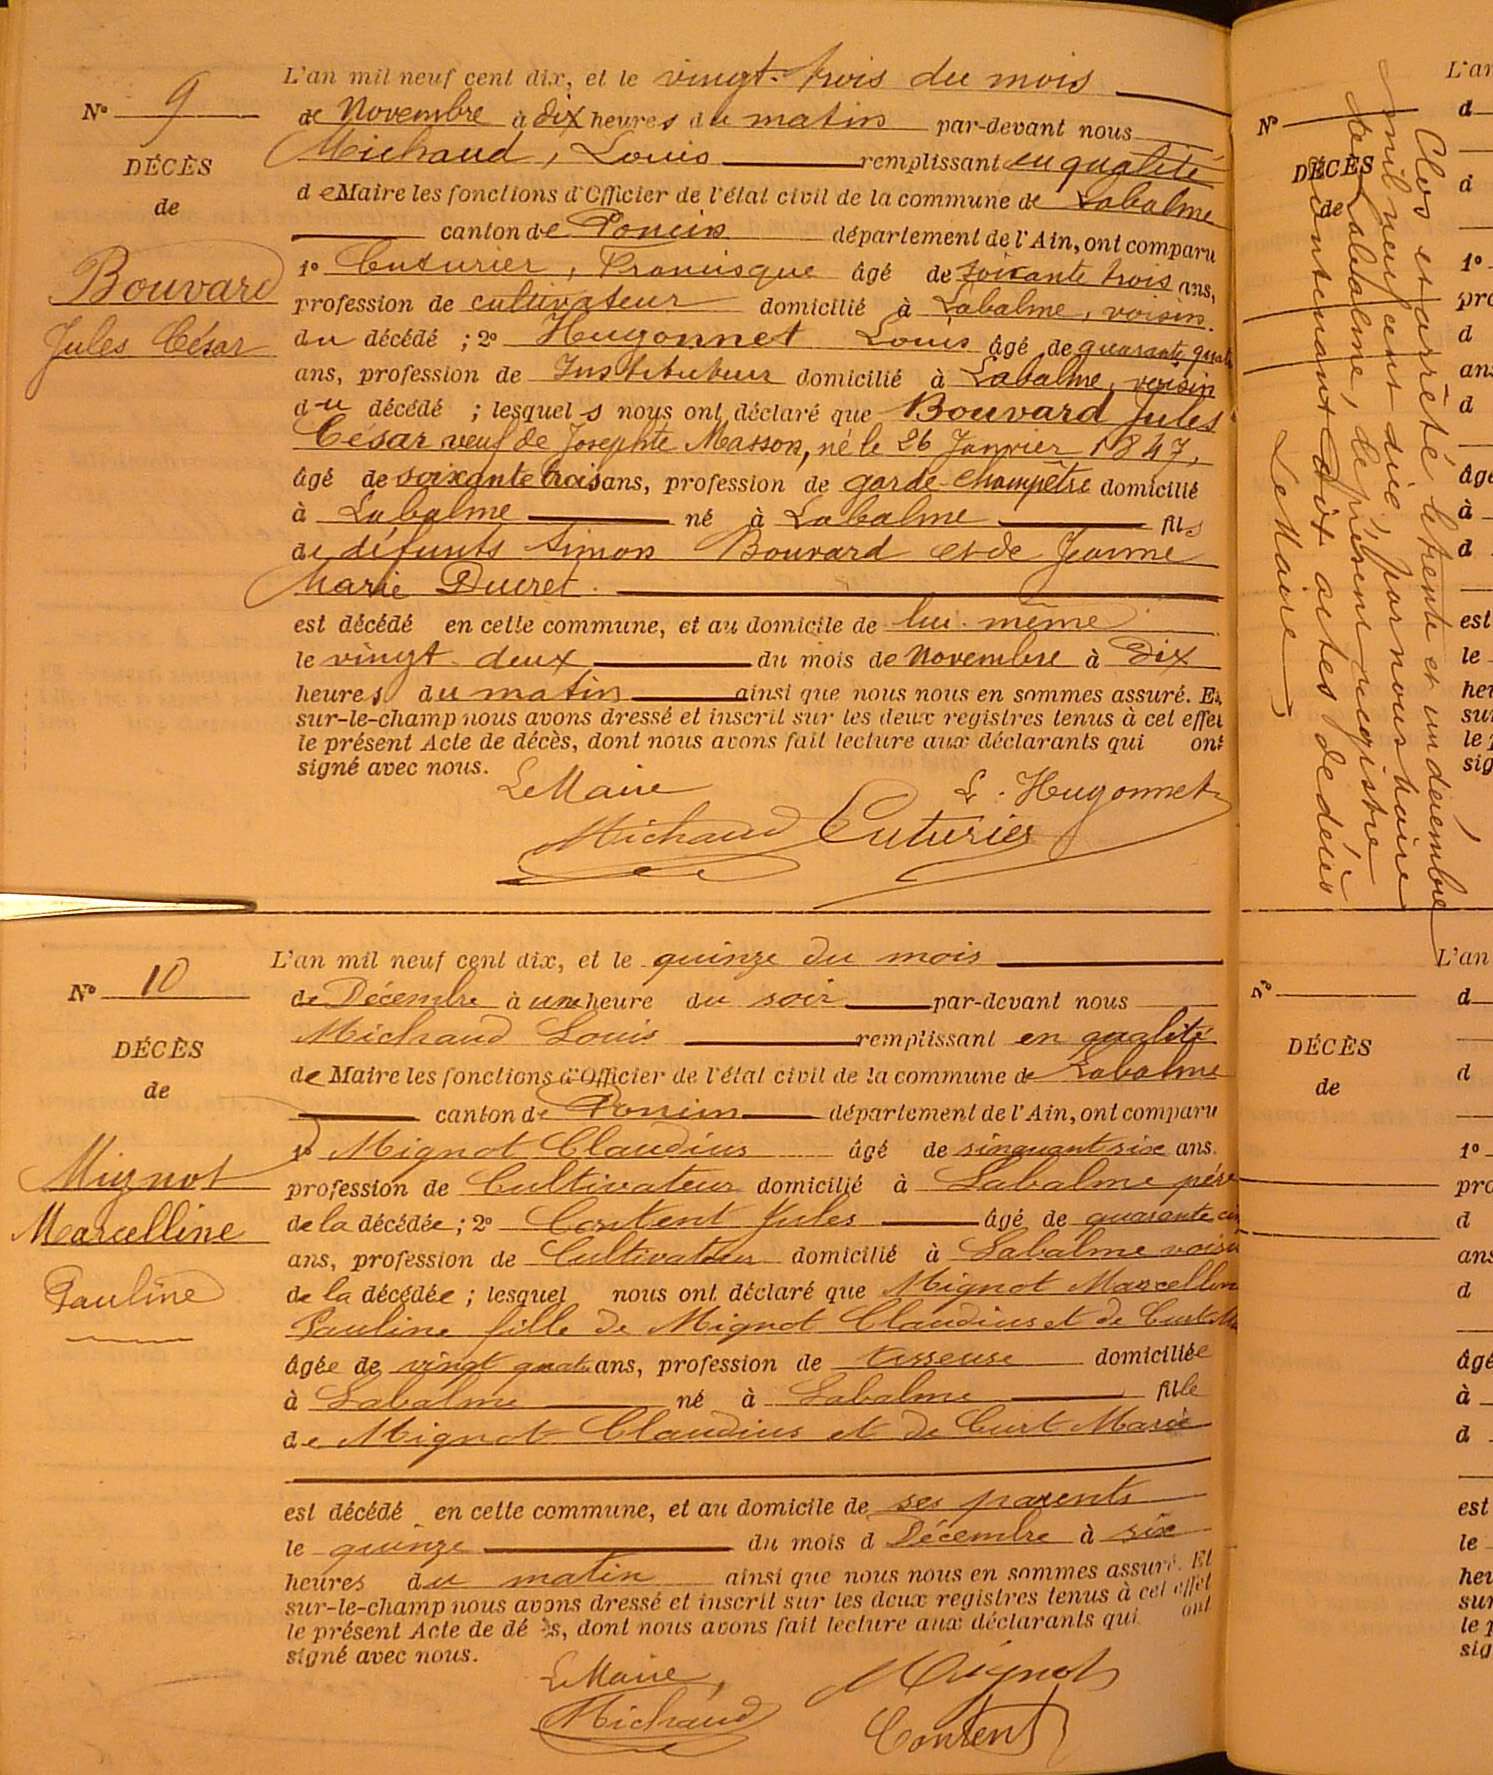 L'an mil neuf cent dix, et le vingt-trois du mois
No 9
de Novembre à dix heures du matin par-devant nous
Michaud, Louis remplissant en qualité
DÉCÈS
de Maire les fonctions d'Officier de l'état civil de la commune de Labalme
de
canton de Poncin département de l'Ain, ont comparu
Bouvard
1o Cuturier, Francisque âgé de soixante trois ans,
profession de cultivateur domicilié à Labalme, voisin
Jules César
du décédé ; 2o Hugonnet Louis âgé de quarante quatre
ans, profession de Instituteur domicilié à Labalme, voisin
du décédé ; lesquels nous ont déclaré que Bouvard Jules
César veuf de Josephte Masson, né le 26 Janvier 1847,
âgé de soixante trois ans, profession de garde-champêtre domicilié
à Labalme né à Labalme fils
de défunts Simon Bouvard et de Jeanne
Marie Ducret.
est décédé en cette commune, et au domicile de lui-même
le vingt-deux du mois de Novembre à Dix
heures du matin ainsi que nous nous en sommes assuré. Et
sur-le-champ nous avons dressé et inscrit sur les deux registres tenus à cet effet
le présent Acte de décès, dont nous avons fait lecture aux déclarants qui ont
signé avec nous.
Le Maire
L. Hugonnet
Michaud Cuturier
L'an mil neuf cent dix, et le quinze du mois
No 10
de Décembre à une heure du soir par-devant nous
Michaud Louis remplissant en qualité
DÉCÈS
de Maire les fonctions d'Officier de l'état civil de la commune de Labalme
de
canton de Poncin département de l'Ain, ont comparu
1o Mignot Claudius âgé de sinquant six ans.
Mignot
profession de Cultivateur domicilié à Labalme père
Marcelline
de la décédée ; 2o Content Jules âgé de quarante cin
ans, profession de Cultivateur domicilié à Labalme voisin
Pauline
de la décédée ; lesquel nous ont déclaré que Mignot Marcelline
Pauline fille de Mignot Claudius et de Curt Ma
âgée de vingt quatre ans, profession de tisseuse domiciliée
à Labalme né à Labalme fille
de Mignot Claudius et de Curt Marie
est décédé en cette commune, et au domicile de ses parents
le quinze du mois d Décembre à six
heures du matin ainsi que nous nous en sommes assuré. Et
sur-le-champ nous avons dressé et inscrit sur les deux registres tenus à cet effet
le présent Acte de dé s, dont nous avons fait lecture aux déclarants qui ont
signé avec nous.
Le Maire, Mignot
Michaud Content
Clos et arrêté le trente et un décembre
mil neuf cent dix, par nous maire
de Labalme, le présent registre
contenant dix actes de décès
Le Maire
No
DÉCÈS
de
L'an
d
d
1o
pro
d
ans
d
âgé
à
d
est
le
heu
sur
le p
sig
No
DÉCÈS
de
L'an
d
d
1o
pro
d
ans
d
âgé
à
d
est
le
heu
sur
le p
sig